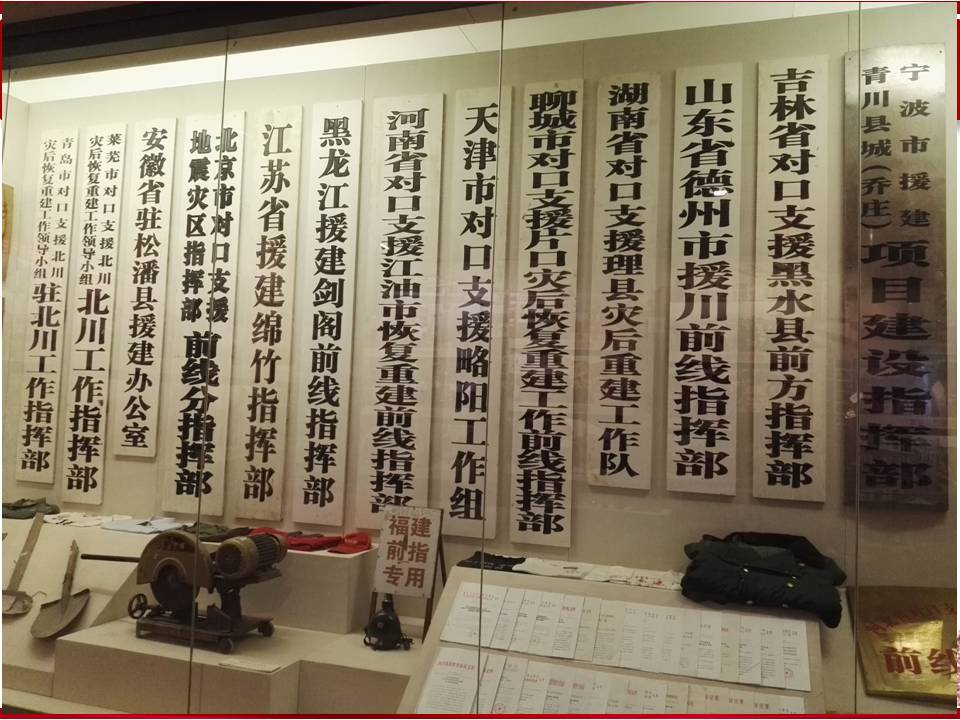 宁波市援建
青川县城(乔庄)
项目建设指挥部
吉林省对口支援黑水县前方指挥部
山东省德州市援川前线指挥部
湖南省对口支援理县灾后重建工作队
聊城市对口支援片口灾后恢复重建工作前线指挥部
天津市对口支援略阳工作组
河南省对口支援江油市恢复重建前线指挥部
黑龙江援建剑阁前线指挥部
江苏省援建绵竹指挥部
北京市对口支援
地震灾区指挥部
前线分指挥部
安徽省驻松潘县援建办公室
莱芜市对口支援北川
灾后恢复重建工作领导小组
北川工作指挥部
青岛市对口支援北川
灾后恢复重建工作领导小组
驻北川工作指挥部
福建
前指
专用
前线